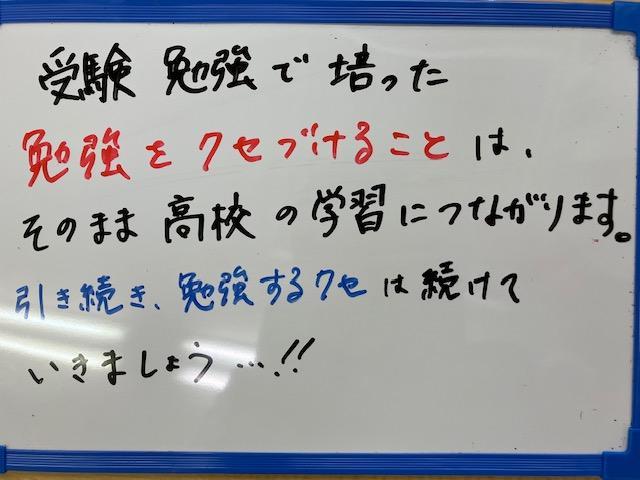 受験勉強で培った
勉強をクセづけることは、
そのまま高校の学習につながります。
引き続き、勉強するクセは続けて
いきましょう…!!